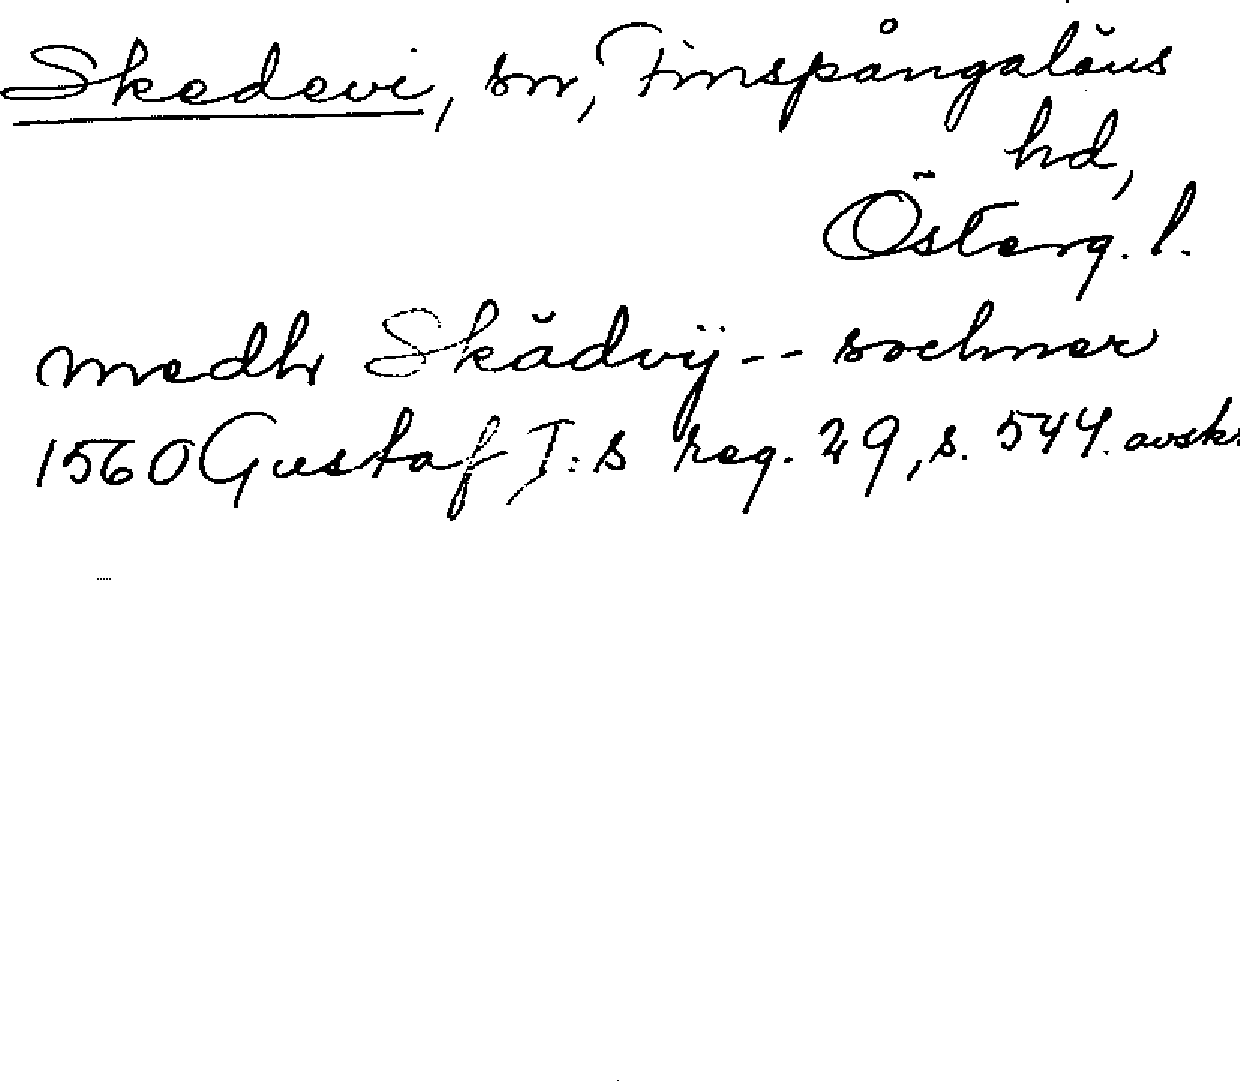 Skedevi, sn, Finspångaläns
hd,
Österg. l.
medh Skädvÿ -- sochner
1560 Gustaf I:s reg. 29, s. 544. avskr